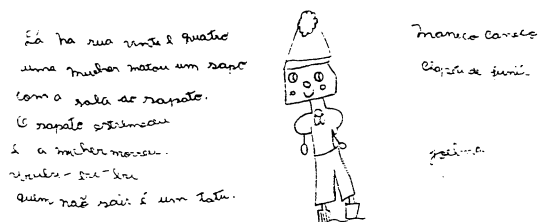 Lá na rua vinte e quatro
uma mulher matou um sapo
com a sola do sapato.
O sapato estremeceu
e a mulher morreu.
urubu-bu-bu
quem não sair é um tatu.
Maneco Careca